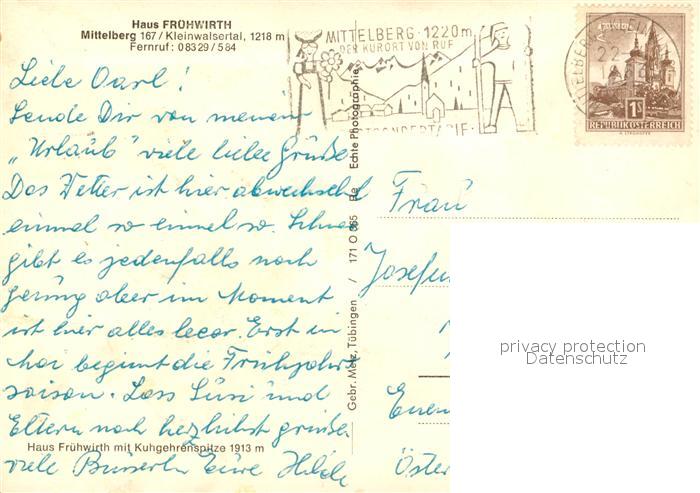 Haus FRÜHWIRTH
Mittelberg 167 / Kleinwalsertal, 1218 m
Fernruf: 08329/584
MITTELBERG · 1220m
DER KURORT VON RUF
REPUBLIK ÖSTERREICH
1S
22
Liebe
Sende Dir von meinem
„Urlaub" viele liebe Grüße
Das Wetter ist hier abwechselnd
einmal so einmal so. Schnee
gibt es jedenfalls noch
genug aber im Moment
ist hier alles leer. Erst im
Mai beginnt die Frühjahrs
saison. Lass Susi und
Eltern noch herzlichst grüßen
viele Busserln Eure Hilde
Haus Frühwirth mit Kuhgehrenspitze 1913 m
Gebr. Metz, Tübingen / 171 O 865 Echte Photographie
Frau
privacy protection
Datenschutz